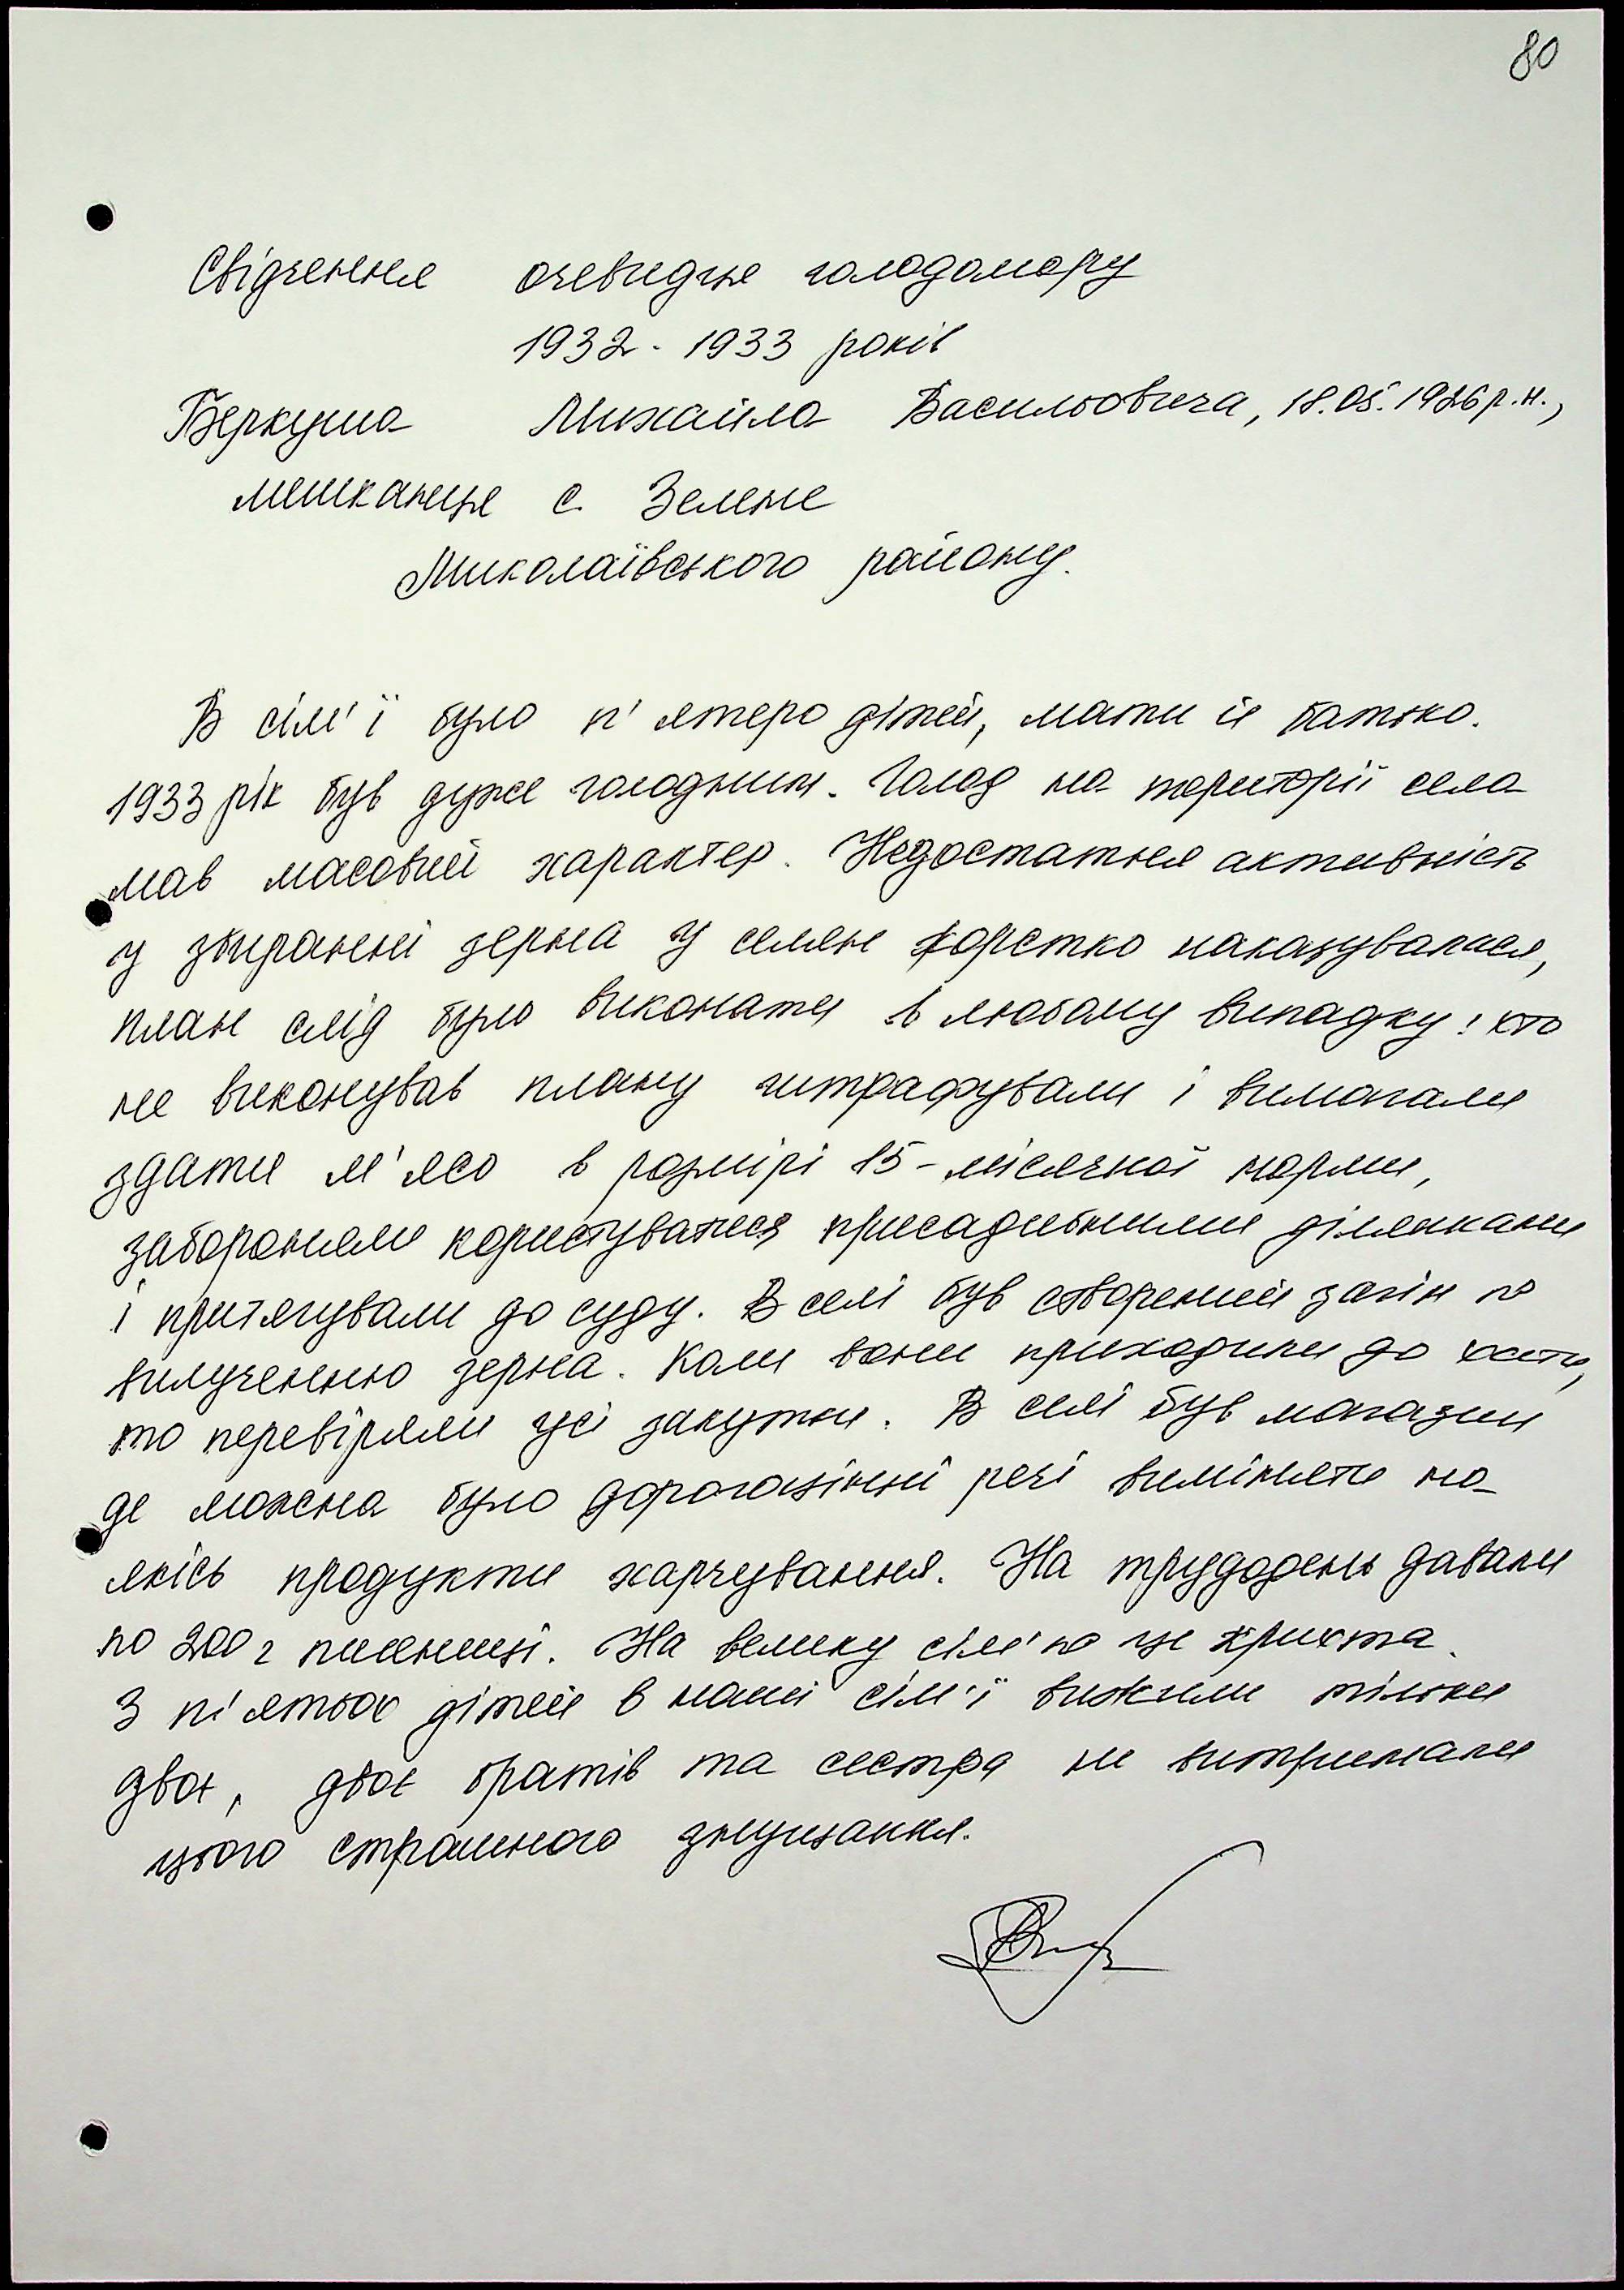 80
Свідчення очевидця голодомору
1932-1933 років
Беркуша Михайла Васильовича, 18.05.1926 р.н.,
мешканця с. Зелене
Миколаївського району.
В сім'ї було п'ятеро дітей, мати й батько.
1933 рік був дуже голодним. Голод на території села
мав масовий характер. Недостатня активність
у збиранні зерна у селян жорстко наказувалася,
план слід було виконати в любому випадку: хто
не виконував плану штрафували і вимагали
здати м'ясо в розмірі 15-місячної норми,
забороняли користуватися присадибними ділянками
і притягували до суду. В селі був створений загін по
вилученню зерна. Коли вони приходили до хати,
то перевіряли усі закутки. В селі був магазин
де можна було дорогоцінні речі виміняти на
якісь продукти харчування. На трудодень давали
по 200 г пшениці. На велику сім'ю це крихта.
З п'ятьох дітей в нашій сім'ї вижили тільки
двоє, двоє братів та сестра не витримали
цього страшного знущання.